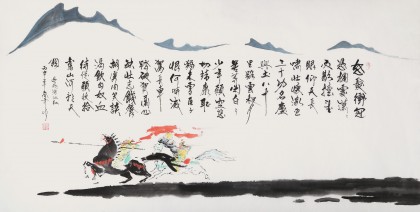 怒髮衝冠
憑欄處瀟
雨歇抬望
眼仰天長
嘯壯懷激烈
三十功名塵
與土八千
里路雲和
月莫等閒白了
少年頭空悲
切靖康恥
猶未雪臣子
恨何時滅
駕長車
踏破賀蘭山
缺壯志飢餐
胡虜肉笑談
渴飲匈奴血
待從頭收拾
舊山河朝天
闕 岳飛滿江紅